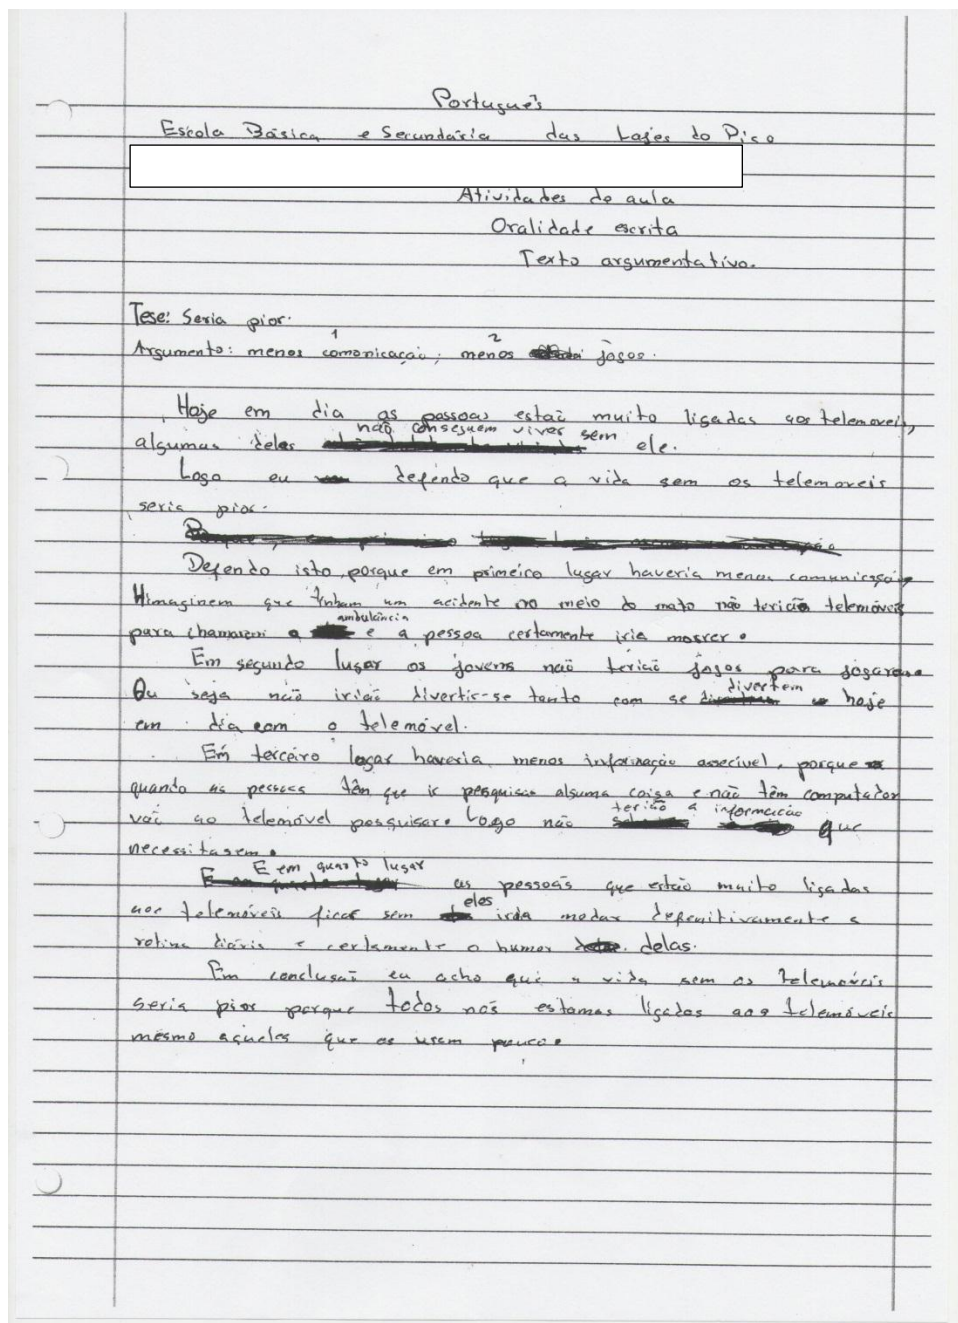 Português
Escola Básica e Secundária das Lajes do Pico
Atividades de aula
Oralidade escrita
Texto argumentativo.
Tese: Seria pior.
1 2
Argumento: menos comonicação; menos jogos.
Hoje em dia as pessoas estaõ muito ligadas aos telemoveis,
não conseguem viver sem
algumas deles ele.
Logo eu defendo que a vida sem os telemoveis
seria pior.
Defendo isto, porque em primeiro lugar haveria menos comunicação.
Himaginem que tinham um acidente no meio do mato não terião telemóveis
ambulância
para chamarem a e a pessoa certamente iria morrer.
Em segundo lugar os jovens naõ teriaõ jogos para jogarem.
divertem
Ou seja naõ iriaõ divertir-se tanto com se hoje
em dia com o telemóvel.
Em terceiro logar haveria menos informação assecível, porque
quando as pessoas têm que ir pesquisar alguma coisa e não têm computador
terião a informacão
vaõ ao telemóvel pesquisar. Logo não que
necessitarem.
E em quarto lugar
as pessoas que estão muito ligadas
eles
aos telemóveis ficar sem irão modar defenitivamente a
rotina diária e certamente o humor delas.
Em conclusaõ eu acho que a vida sem os telemóveis
seria pior porque todos nós estamos ligados aos telemóveis
mesmo aqueles que os usam pouco.